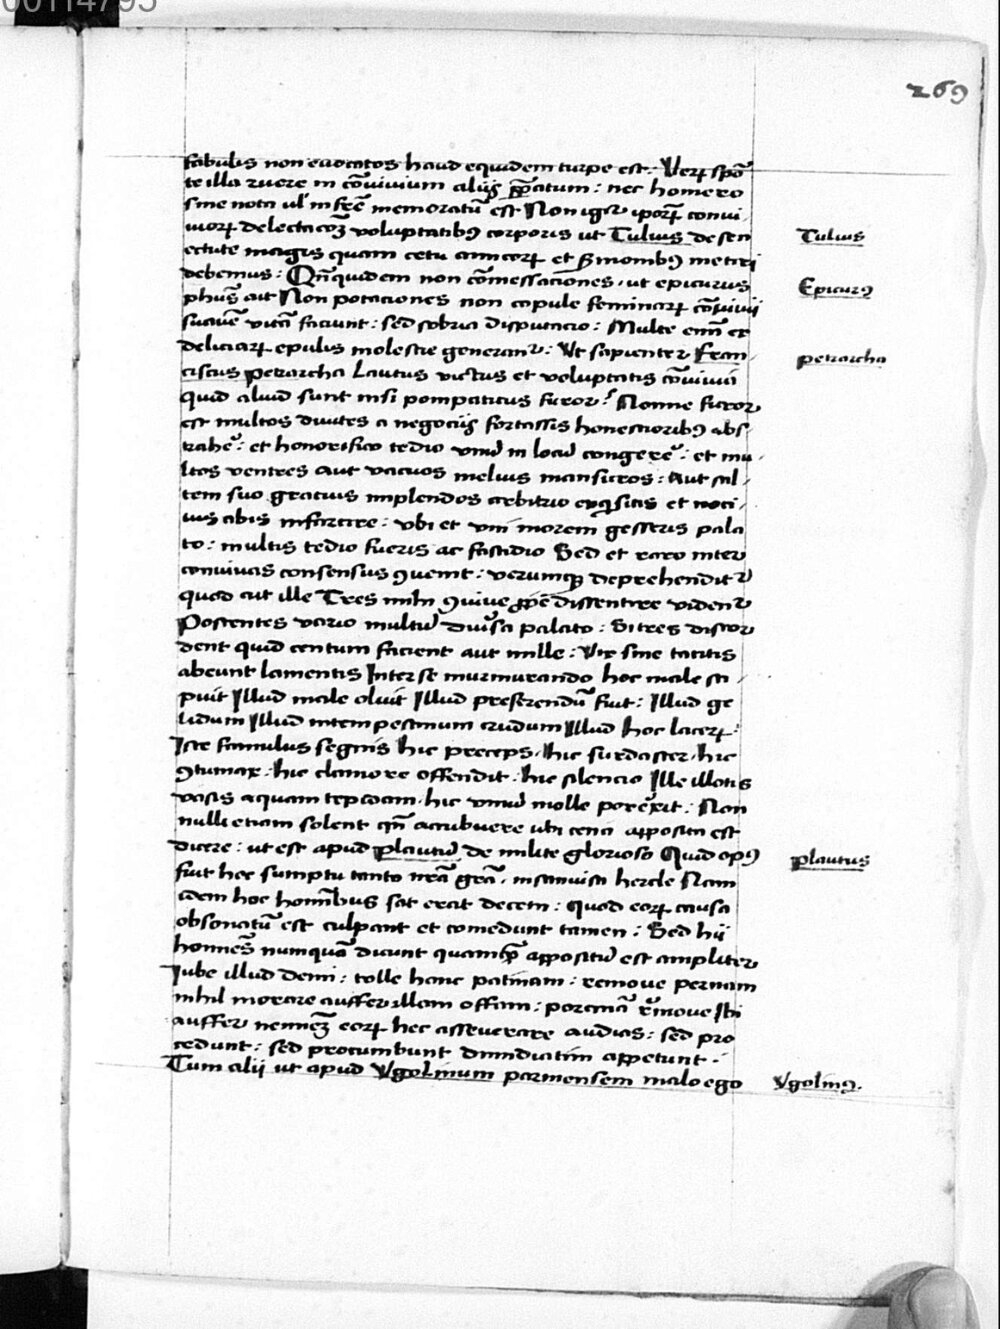 00114795
269
fabulis non euocatos haud equidem turpe est. Verũ spõ
te illa ruere in cõuiuium alijs paratum : nec homero
sine nota ul' memoratũ est Non igr̃ iporꝝ conui,
uiorꝝ delectacõꝫ voluptatibꝰ corporis ut Tulius de sen
ectute magis quam cetu amicorꝝ et sermonibꝰ metiri
debemus : Qñquidem non cõmessaciones, ut epicurus
phũs ait Non potaciones non copule feminarꝝ cõuiuij
suauẽ vitã faciunt : sed sobria disputacio : Multe enim ex
deliciarꝝ epulis molestie generant᷑ : Ut sapienter Fran,
ciscus petrarcha Lautus victus et voluptatis cõuiuia
quid aliud sunt nisi pompaticus furor? Nonne furor
est multos diuites a negocijs fortassis honestioribꝰ abs,
trahe᷑ : et honorifico tedio vnũ in locũ congerẽ : et mu,
ltos ventres aut vacuos melius mansuros : Aut sal,
tem suo gracius implendos arbitrio exquisitis et noci,
uis cibis infarcire : vbi et vni morem gesseris pala
to : multis tedio fueris ac fastidio Sed et raro inter
conuiuas consensus ꝯuenit : verumqꝫ deprehendit᷑
quod ait ille Tres mihi ꝯuiue ꝓpe dissentire vident᷑
Poscentes vario multũ diuersa palato : Si tres discor
dent quid centum facient aut mille : Vix sine tacitis
abeunt lamentis Inter se murmurando hoc male sa,
puit Illud male oluit Illud preferendũ fuit : Illud ge
lidum Illud intempestiuum crudum Illud hoc lacerꝝ :
Iste famulus segnis hic preceps, hic surdaster, hic
ꝯtumax, hic clamore offendit, hic silencio Ille illotis
vasis aquam tepidam, hic vinũ molle porrexit : Nam
nulli etiam solent qñ accubuere ubi cena apposita est
dicere : ut est apud plautũ de milite glorioso Quid opꝰ
fuit hoc sumptu tanto nr̃a grã, insaniuisti hercle Nam
idem hoc hominibus sat erat decem : Quod eorꝝ causa
obsonatũ est culpant et comedunt tamen : Sed hij
homines numquã dicunt quamqꝫ appositũ est ampliter
Iube illud demi : tolle hanc patinam : remoue pernam
nihil morare auffer illam offam : porcinã remoue Ibi
auffer neminẽ eorꝝ hec asseuerare audias : sed pro
cedunt : sed procumbunt dimidiatim appetunt :
Tum alii ut apud Vgolinum parmensem malo ego
Tulius
Epicurꝰ
petrarcha
plautus
Vgolinꝰ.